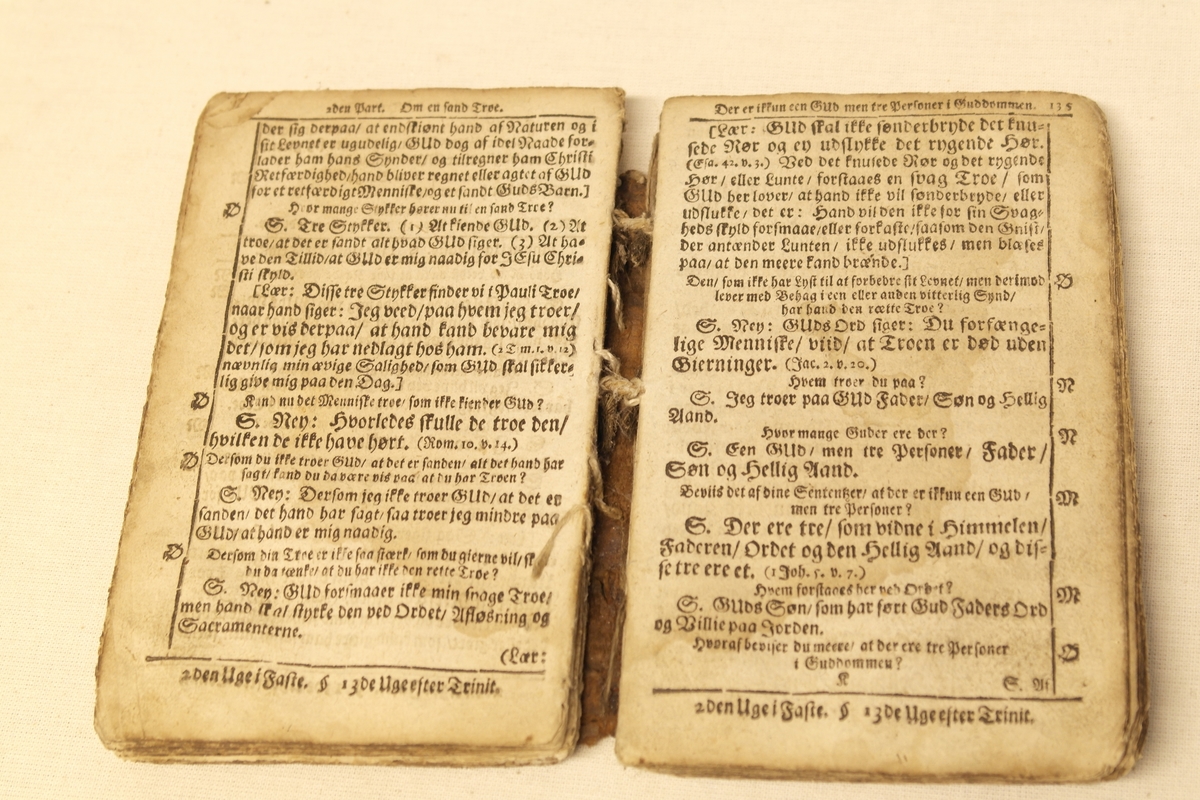 2den Part. Om en sand Troe.
der sig derpaa/ at endskiønt hand af Naturen og i
sit Levnet er ugudelig/ GUd dog af idel Naade for-
lader ham hans Synder/ og tilregner ham Christi
Retfærdighed/hand bliver regnet eller agtet af GUd
for et retfærdigt Menniske/og et sandt Guds Barn.]
D Hvor mange Stykker hører nu til en sand Troe?
S. Tre Stykker. (1) At kiende GUd. (2) At
troe/at det er sandt alt hvad GUd siger. (3) At ha-
ve den Tillid/at GUd er mig naadig for JEsu Chri-
sti skyld.
[Lær: Disse tre Stykker finder vi i Pauli Troe/
naar hand siger: Jeg veed/paa hvem jeg troer/
og er vis derpaa/ at hand kand bevare mig
det/som jeg har nedlagt hos ham. (2 Tim. 1. v. 12)
nævnlig min ævige Salighed/ som GUd skal sikker-
lig give mig paa den Dag.]
D Kand nu det Menniske troe/ som ikke kiender GUd?
S. Ney: Hvorledes skulle de troe den/
hvilken de ikke have hørt. (Rom. 10. v. 14.)
D Dersom du ikke troer GUd/ at det er sanden/ alt det hand har
sagt/ kand du da være vis paa/ at du har Troen?
S. Ney: Dersom jeg ikke troer GUd/ at det er
sanden/ det hand har sagt/ saa troer jeg mindre paa
GUd/ at hand er mig naadig.
D Dersom din Troe er ikke saa stærk/ som du gierne vil/ sk
du da tænke/ at du har ikke den rette Troe?
S. Ney: GUd forsmaaer ikke min svage Troe/
men hand skal styrke den ved Ordet/ Afløsning og
Sacramenterne.
(Lær:
2den Uge i Faste. § 13de Uge efter Trinit.
Der er ikkun een GUd men tre Personer i Guddommen. 135
[Lær: GUd skal ikke sønderbryde det knu-
sede Rør og ey udslykke det rygende Hør.
(Esa. 42. v. 3.) Ved det knusede Rør og det rygende
Hør/ eller Lunte/ forstaaes en svag Troe/ som
GUd her lover/ at hand ikke vil sønderbryde/ eller
udslukke/ det er: Hand vil den ikke for sin Svag-
heds skyld forsmaae/eller forkaste/saasom den Gnist/
der antænder Lunten/ ikke udslukkes/ men blæses
paa/ at den meere kand brænde.]
Den/ som ikke har Lyst til at forbedre sit Levnet/ men derimod D
lever med Behag i een eller anden vitterlig Synd/
har hand den rætte Troe?
S. Ney: GUds Ord siger: Du forfænge-
lige Menniske/ viid/ at Troen er død uden
Gierninger. (Jac. 2. v. 20.)
Hvem troer du paa? N
S. Jeg troer paa GUd Fader/ Søn og Hellig
Aand.
Hvor mange Guder ere der? N
S. Een GUd/ men tre Personer/ Fader/
Søn og Hellig Aand.
Beviis det af dine Sententzer/ at der er ikkun een Gud/ M
men tre Personer?
S. Der ere tre/ som vidne i Himmelen/
Faderen/ Ordet og den Hellig Aand/ og dis-
se tre ere et. (1 Joh. 5. v. 7.)
Hvem forstaaes her ved Ordet? M
S. GUds Søn/ som har ført Gud Faders Ord
og Villie paa Jorden.
Hvoraf beviser du meere/ at der ere tre Personer D
i Guddommen?
K S. At
2den Uge i Faste. § 13de Uge efter Trinit.